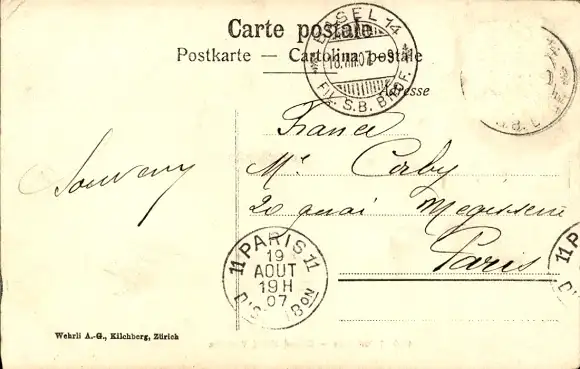 Carte postale
Postkarte — Cartolina postale
Adresse
BASEL 14
18.VIII.07 - 9
FIL. S.B. BHOF.
France
Mr Corby
Souvenir
20 quai Megisserie
Paris
11 PARIS 11
19
AOUT
19H
07
Wehrli A.-G., Kilchberg, Zürich